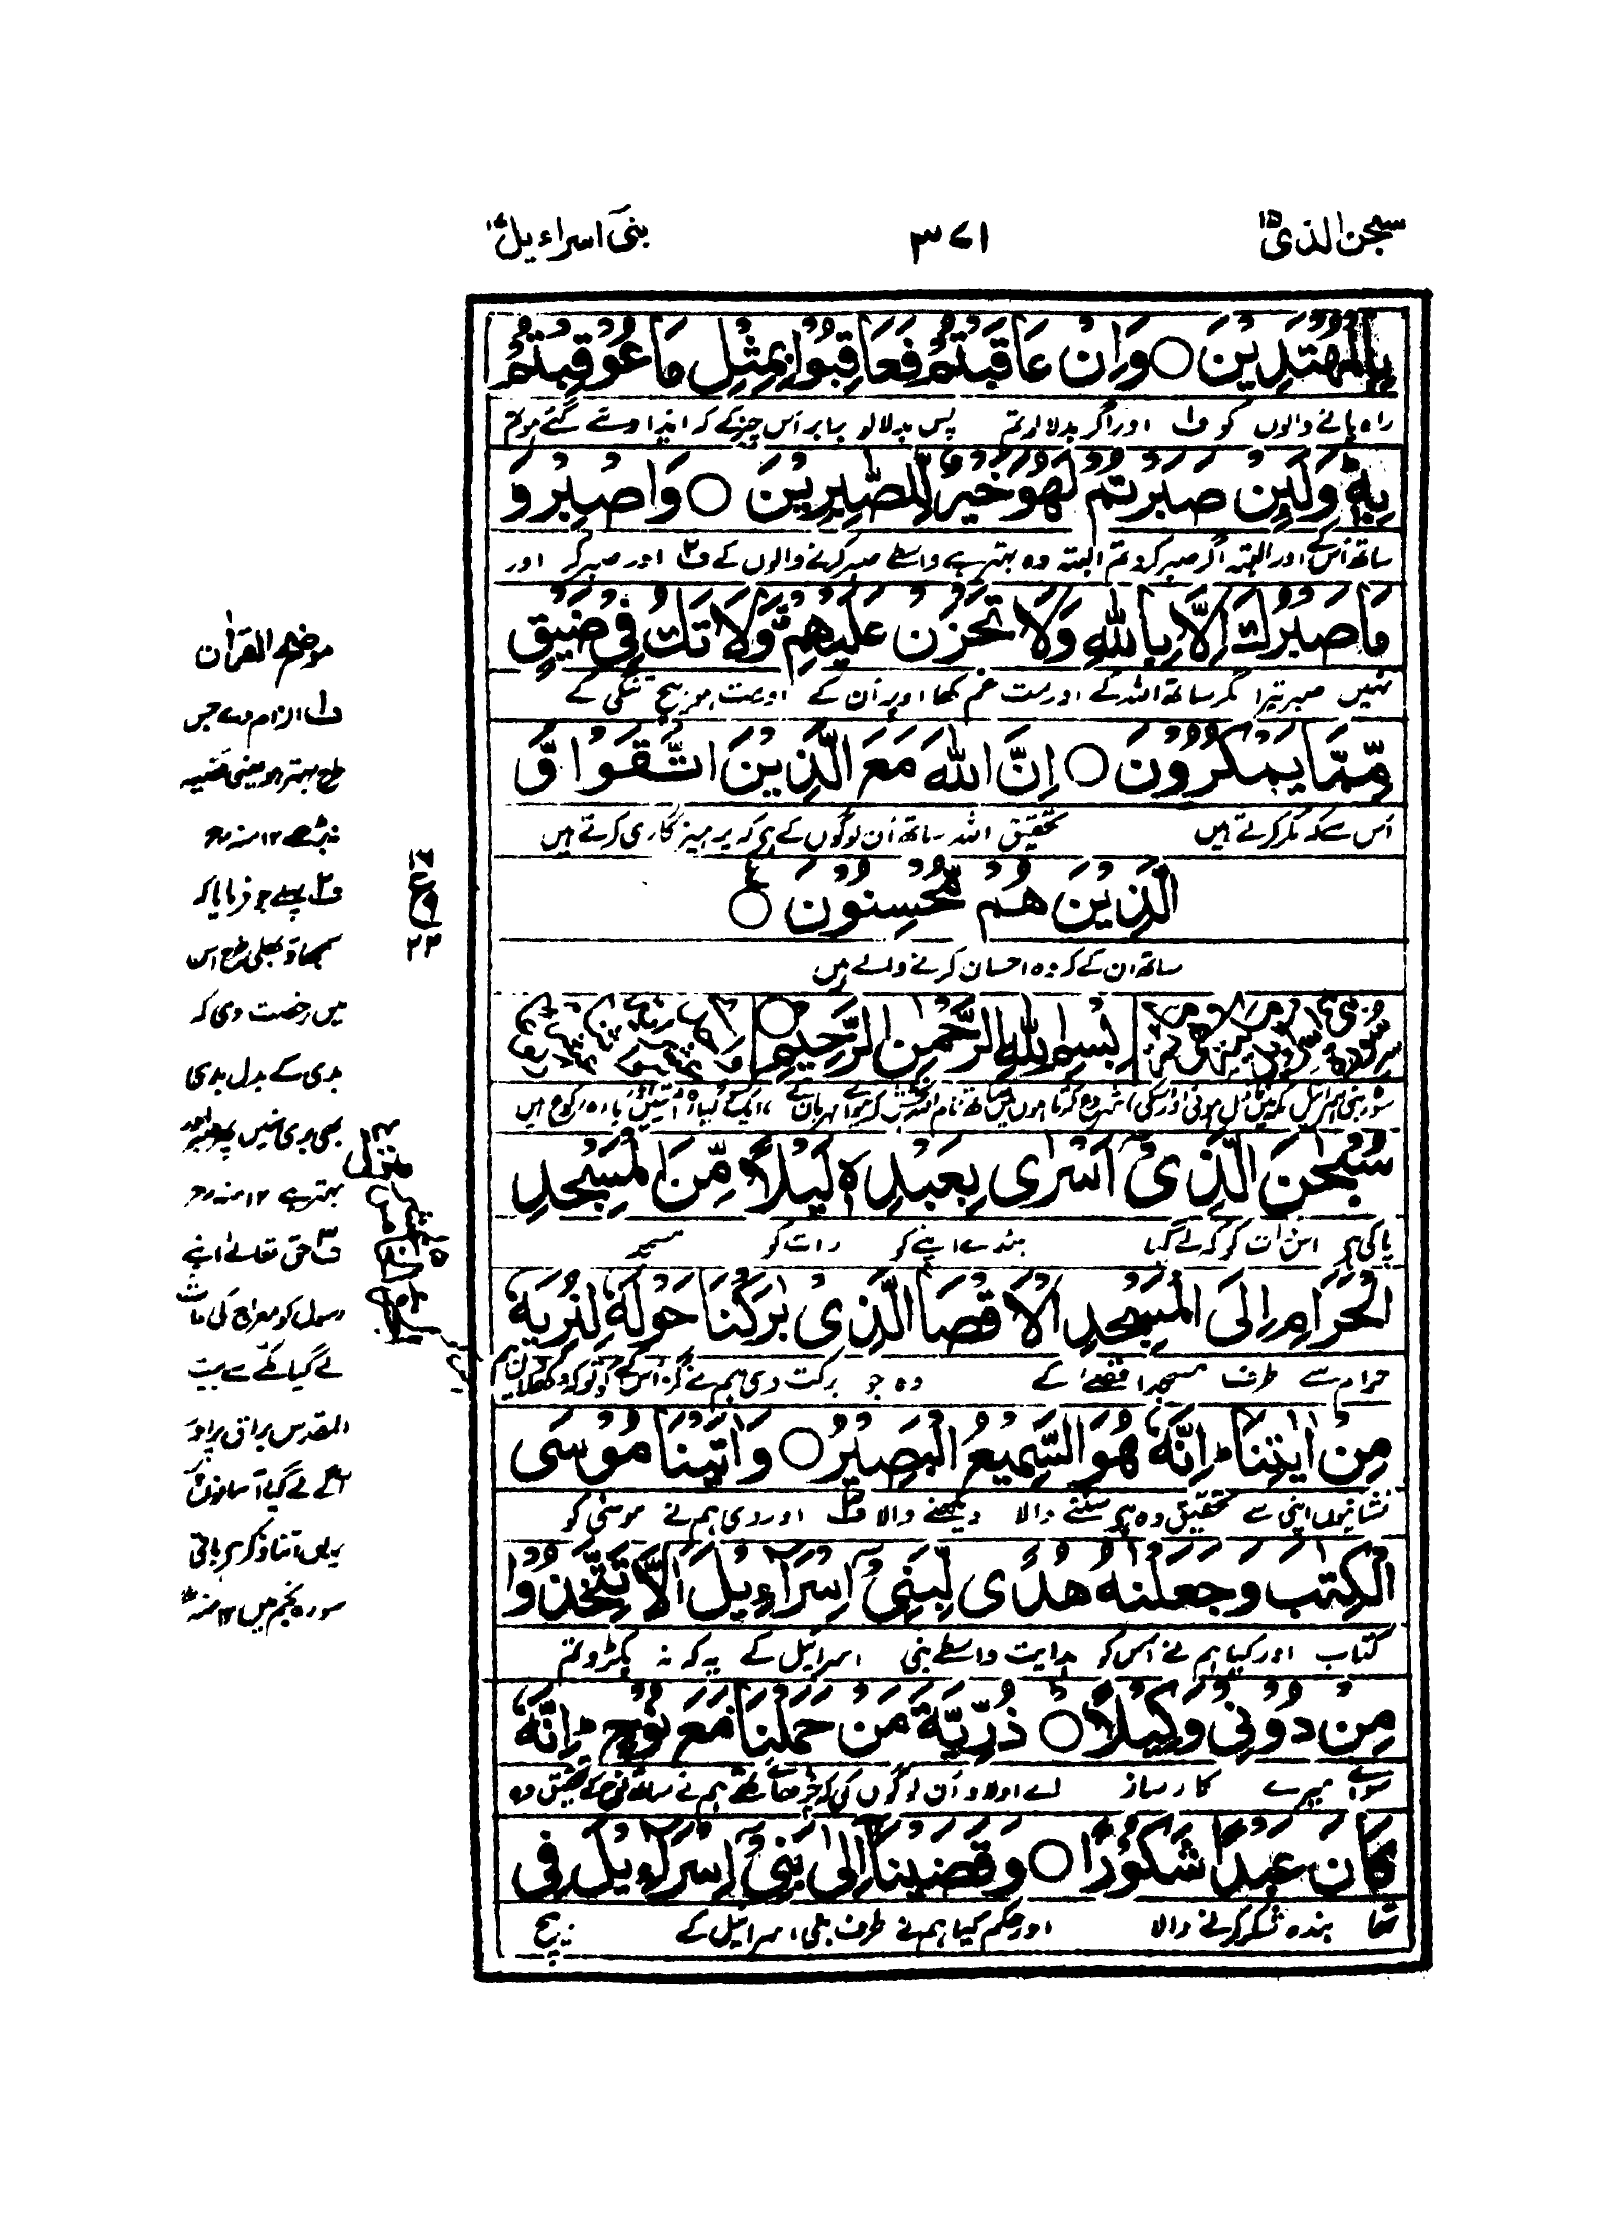 سبحن الذی ۱۵
۳۷۱
بنی اسراءیل ۱۷
بِالْمُهْتَدِيْنَ ○ وَاِنْ عَاقَبْتُمْ فَعَاقِبُوْا بِمِثْلِ مَا عُوْقِبْتُمْ
راہ پانے والوں کو ف۱ اور اگر بدلا لو تم پس بدلا لو برابر اس چیز کے کہ ایذا دئے گئے ہو تم
بِهٖ ؕ وَلَئِنْ صَبَرْتُمْ لَهُوَ خَيْرٌ لِّلصّٰبِرِيْنَ ○ وَاصْبِرْ وَ
ساتھ اس کے اور البتہ اگر صبر کرو تم البتہ وہ بہتر ہے واسطے صبر کرنے والوں کے ف۲ اور صبر کر اور
مَا صَبْرُكَ اِلَّا بِاللّٰهِ وَلَا تَحْزَنْ عَلَيْهِمْ وَلَا تَكُ فِيْ ضَيْقٍ
نہیں صبر تیرا مگر ساتھ اللہ کے اور مت غم کھا اوپر اُن کے اور مت ہو بیچ تنگی کے
مِّمَّا يَمْكُرُوْنَ ○ اِنَّ اللّٰهَ مَعَ الَّذِيْنَ اتَّقَوْا وَّ
اُس سے کہ مکر کرتے ہیں تحقیق اللہ ساتھ اُن لوگوں کے ہے کہ پرہیزگاری کرتے ہیں
الَّذِيْنَ هُمْ مُّحْسِنُوْنَ ○
ساتھ ان کے کہ وہ احسان کرنے والے ہیں
بِسْمِ اللّٰهِ الرَّحْمٰنِ الرَّحِيْمِ ○
سُبْحٰنَ الَّذِيْٓ اَسْرٰى بِعَبْدِهٖ لَيْلًا مِّنَ الْمَسْجِدِ
پاکی ہے اس ذات کو کہ لے گیا بندے اپنے کو رات کو مسجد
الْحَرَامِ اِلَى الْمَسْجِدِ الْاَقْصَا الَّذِيْ بٰرَكْنَا حَوْلَهٗ لِنُرِيَهٗ
حرام سے طرف مسجد اقصےٰ کے وہ جو برکت دی ہم نے گرد اُس کے
مِنْ اٰيٰتِنَا ؕ اِنَّهٗ هُوَ السَّمِيْعُ الْبَصِيْرُ ○ وَاٰتَيْنَا مُوْسَى
نشانیوں اپنی سے تحقیق وہ ہے سننے والا دیکھنے والا ف۳ اور دی ہم نے موسیٰ کو
الْكِتٰبَ وَجَعَلْنٰهُ هُدًى لِّبَنِيْٓ اِسْرَآءِيْلَ اَلَّا تَتَّخِذُوْا
کتاب اور کیا ہم نے اُس کو ہدایت واسطے بنی اسرائیل کے یہ کہ نہ پکڑو تم
مِنْ دُوْنِيْ وَكِيْلًا ○ ذُرِّيَّةَ مَنْ حَمَلْنَا مَعَ نُوْحٍ ؕ اِنَّهٗ
سوا میرے کارساز اے اولاد اُن لوگوں کی کہ چڑھائے تھے ہم نے ساتھ نوح کے تحقیق وہ
كَانَ عَبْدًا شَكُوْرًا ○ وَقَضَيْنَآ اِلٰى بَنِيْٓ اِسْرَآءِيْلَ فِي
تھا بندہ شکر کرنے والا اور حکم کیا ہم نے طرف بنی اسرائیل کے بیچ
موضح القرآن
ف۱ الزام دے جس
طرح بہتر ہو یعنی قضیہ
نہ بڑھے ۱۲ منہ رح
ف۲ پہلے جو فرمایا کہ
سمجھاؤ بھلی طرح اس
میں رخصت دی کہ
بدی کے بدل بدی
بھی بری نہیں پر صبر اور
بہتر ہے ۱۲ منہ رح
ف۳ حق تعالےٰ اپنے
رسول کو معراج کی رات
لے گیا مکے سے بیت
المقدس براق پر اور
آگے لے گیا آسمانوں پر
یہاں اتنا ذکر ہے باقی
سورہ نجم میں ۱۲ منہ رح
ع
۲۲
منزل ۴